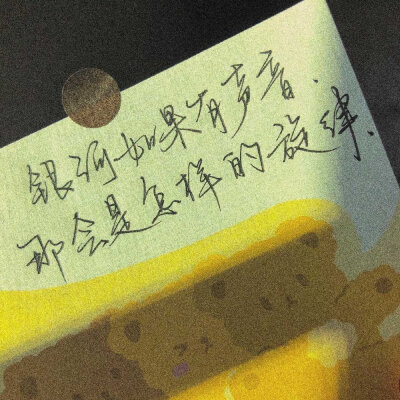 银河如果有声音.
那会是怎样的旋律.